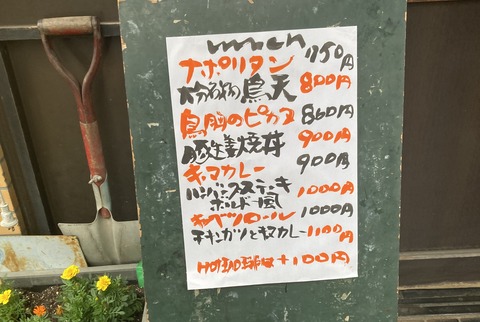 lunch
ナポリタン 950円
大分名物鳥天 800円
鳥胸のピカタ 860円
豚生姜焼丼 900円
キーマカレー 900円
ハンバーグステーキ ボルドー風 1000円
キャベツロール 1000円
チキンカツとキーマカレー 1100円
HOT +100円